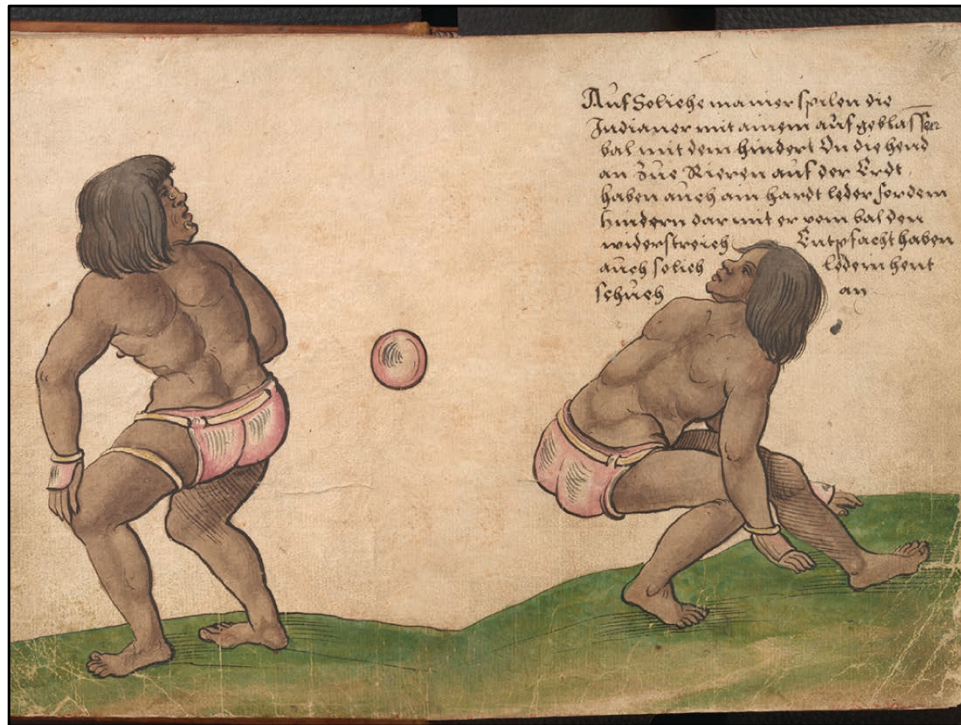 Auf Soliche manier spilen die
Indianer mit ainem auf geblassen
bal mit dem hindert On die hend
an zue Rieren auf der Erdt
haben auch ain hardt leder fordem
hindern dar mit er vom bal den
widerstreich Entpfacht haben
auch solich ledern hent
schuch an